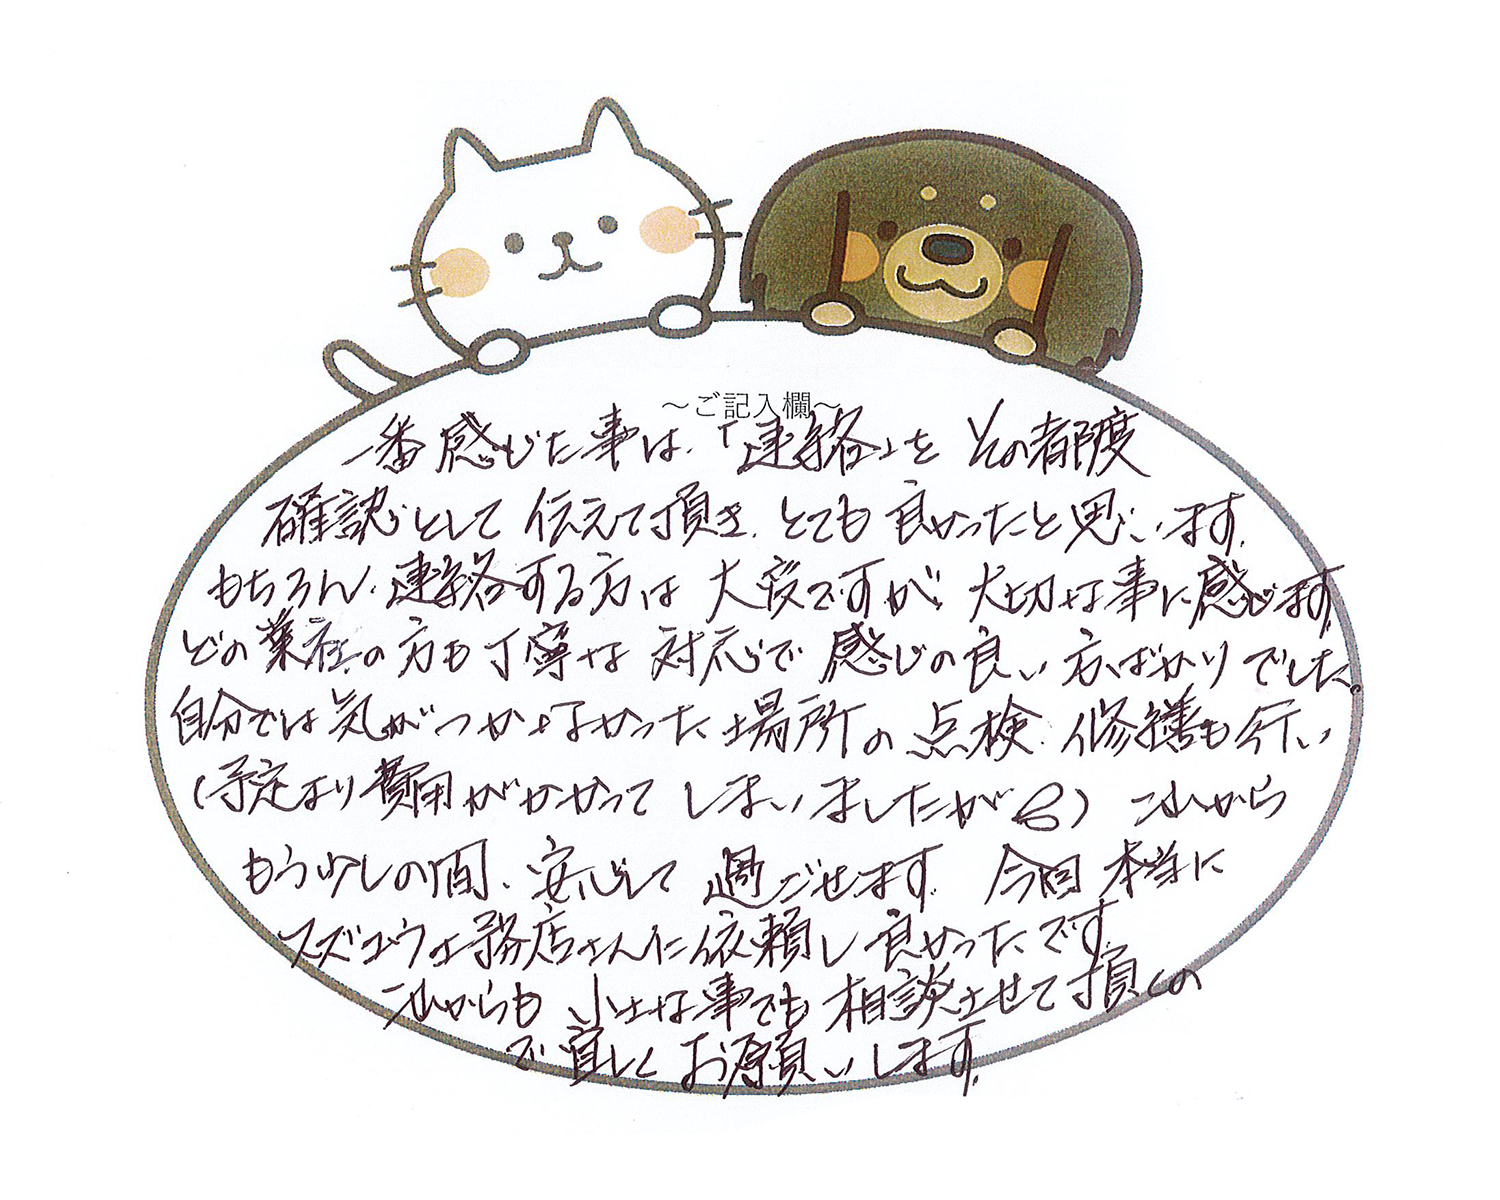 ～ご記入欄～
一番感じた事は、「連絡」を その都度
確認として伝えて頂き、とても良かったと思います。
もちろん、連絡する方は大変ですが、大切な事に感じます。
どの業社の方も丁寧な対応で感じの良い方ばかりでした。
自分では気がつかなかった場所の点検、修繕も行い
(予定より費用がかかってしまいましたが) これから
もう少しの間、安心して過ごせます。今回本当に
スズコウ工務店さんに依頼し良かったです。
これからも小さな事でも相談させて頂くの
で宜しくお願いします。